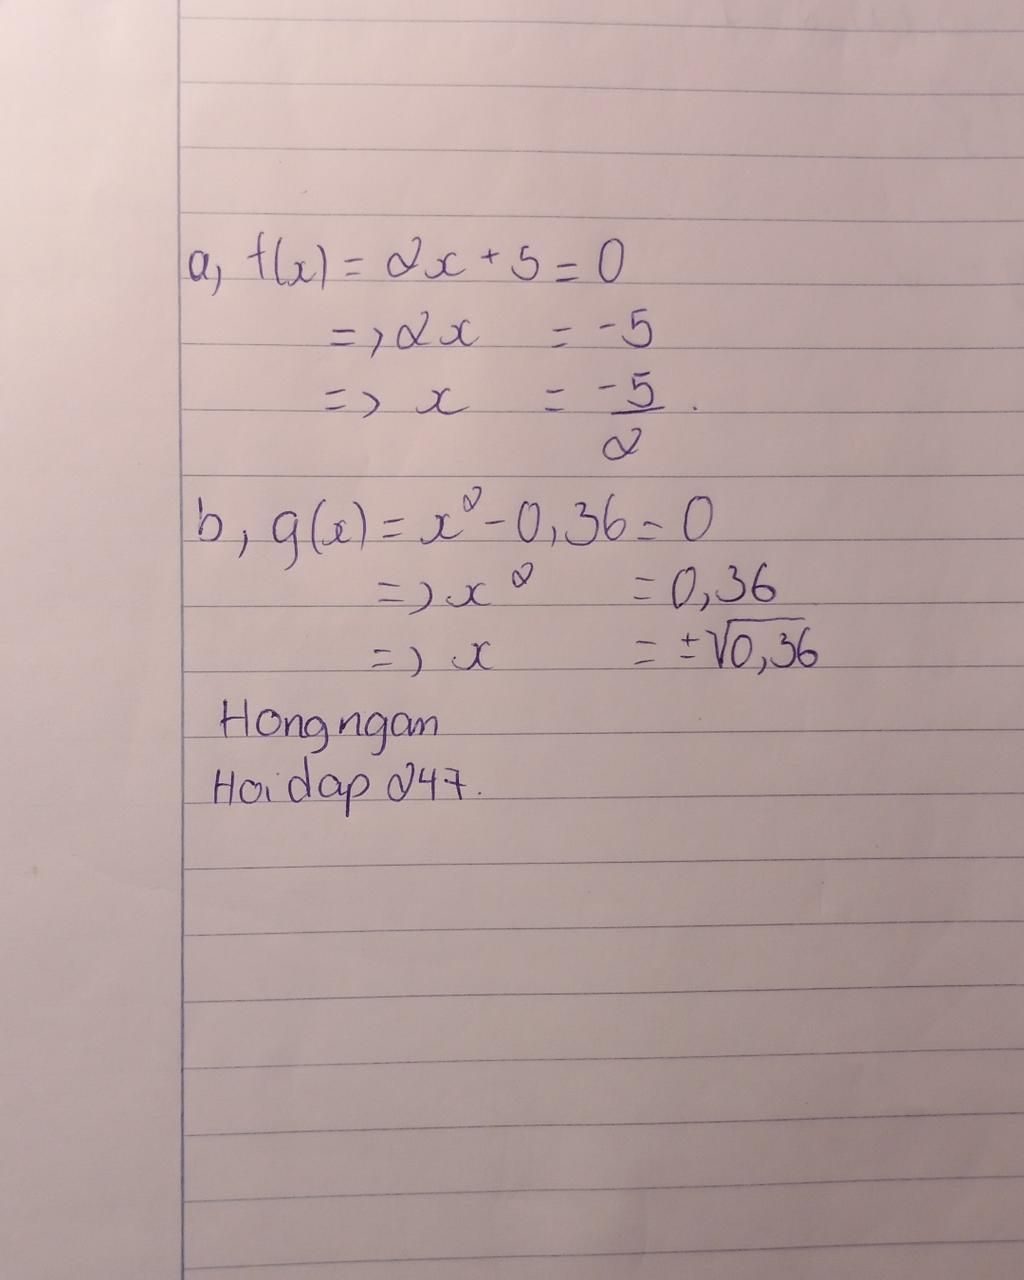 a, f(x) = 2x + 5 = 0
=> 2x = -5
=> x = -5/2.
b, g(x) = x² - 0,36 = 0
=> x² = 0,36
=> x = ±√0,36
Hongngan
Hoidap 247.